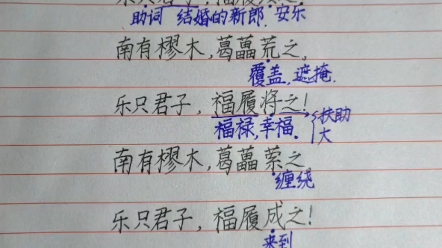 助词 结婚的新郎.安乐
南有樛木,葛藟荒之,
覆盖,遮掩.
乐只君子,福履将之!
福禄,幸福. 扶助
大
南有樛木,葛藟萦之
缠绕
乐只君子,福履成之!
来到